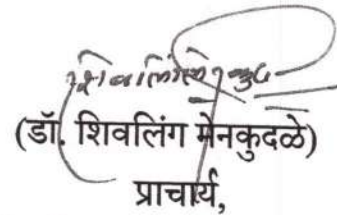 (डॉ. शिवलिंग मेनकुदळे)
प्राचार्य,